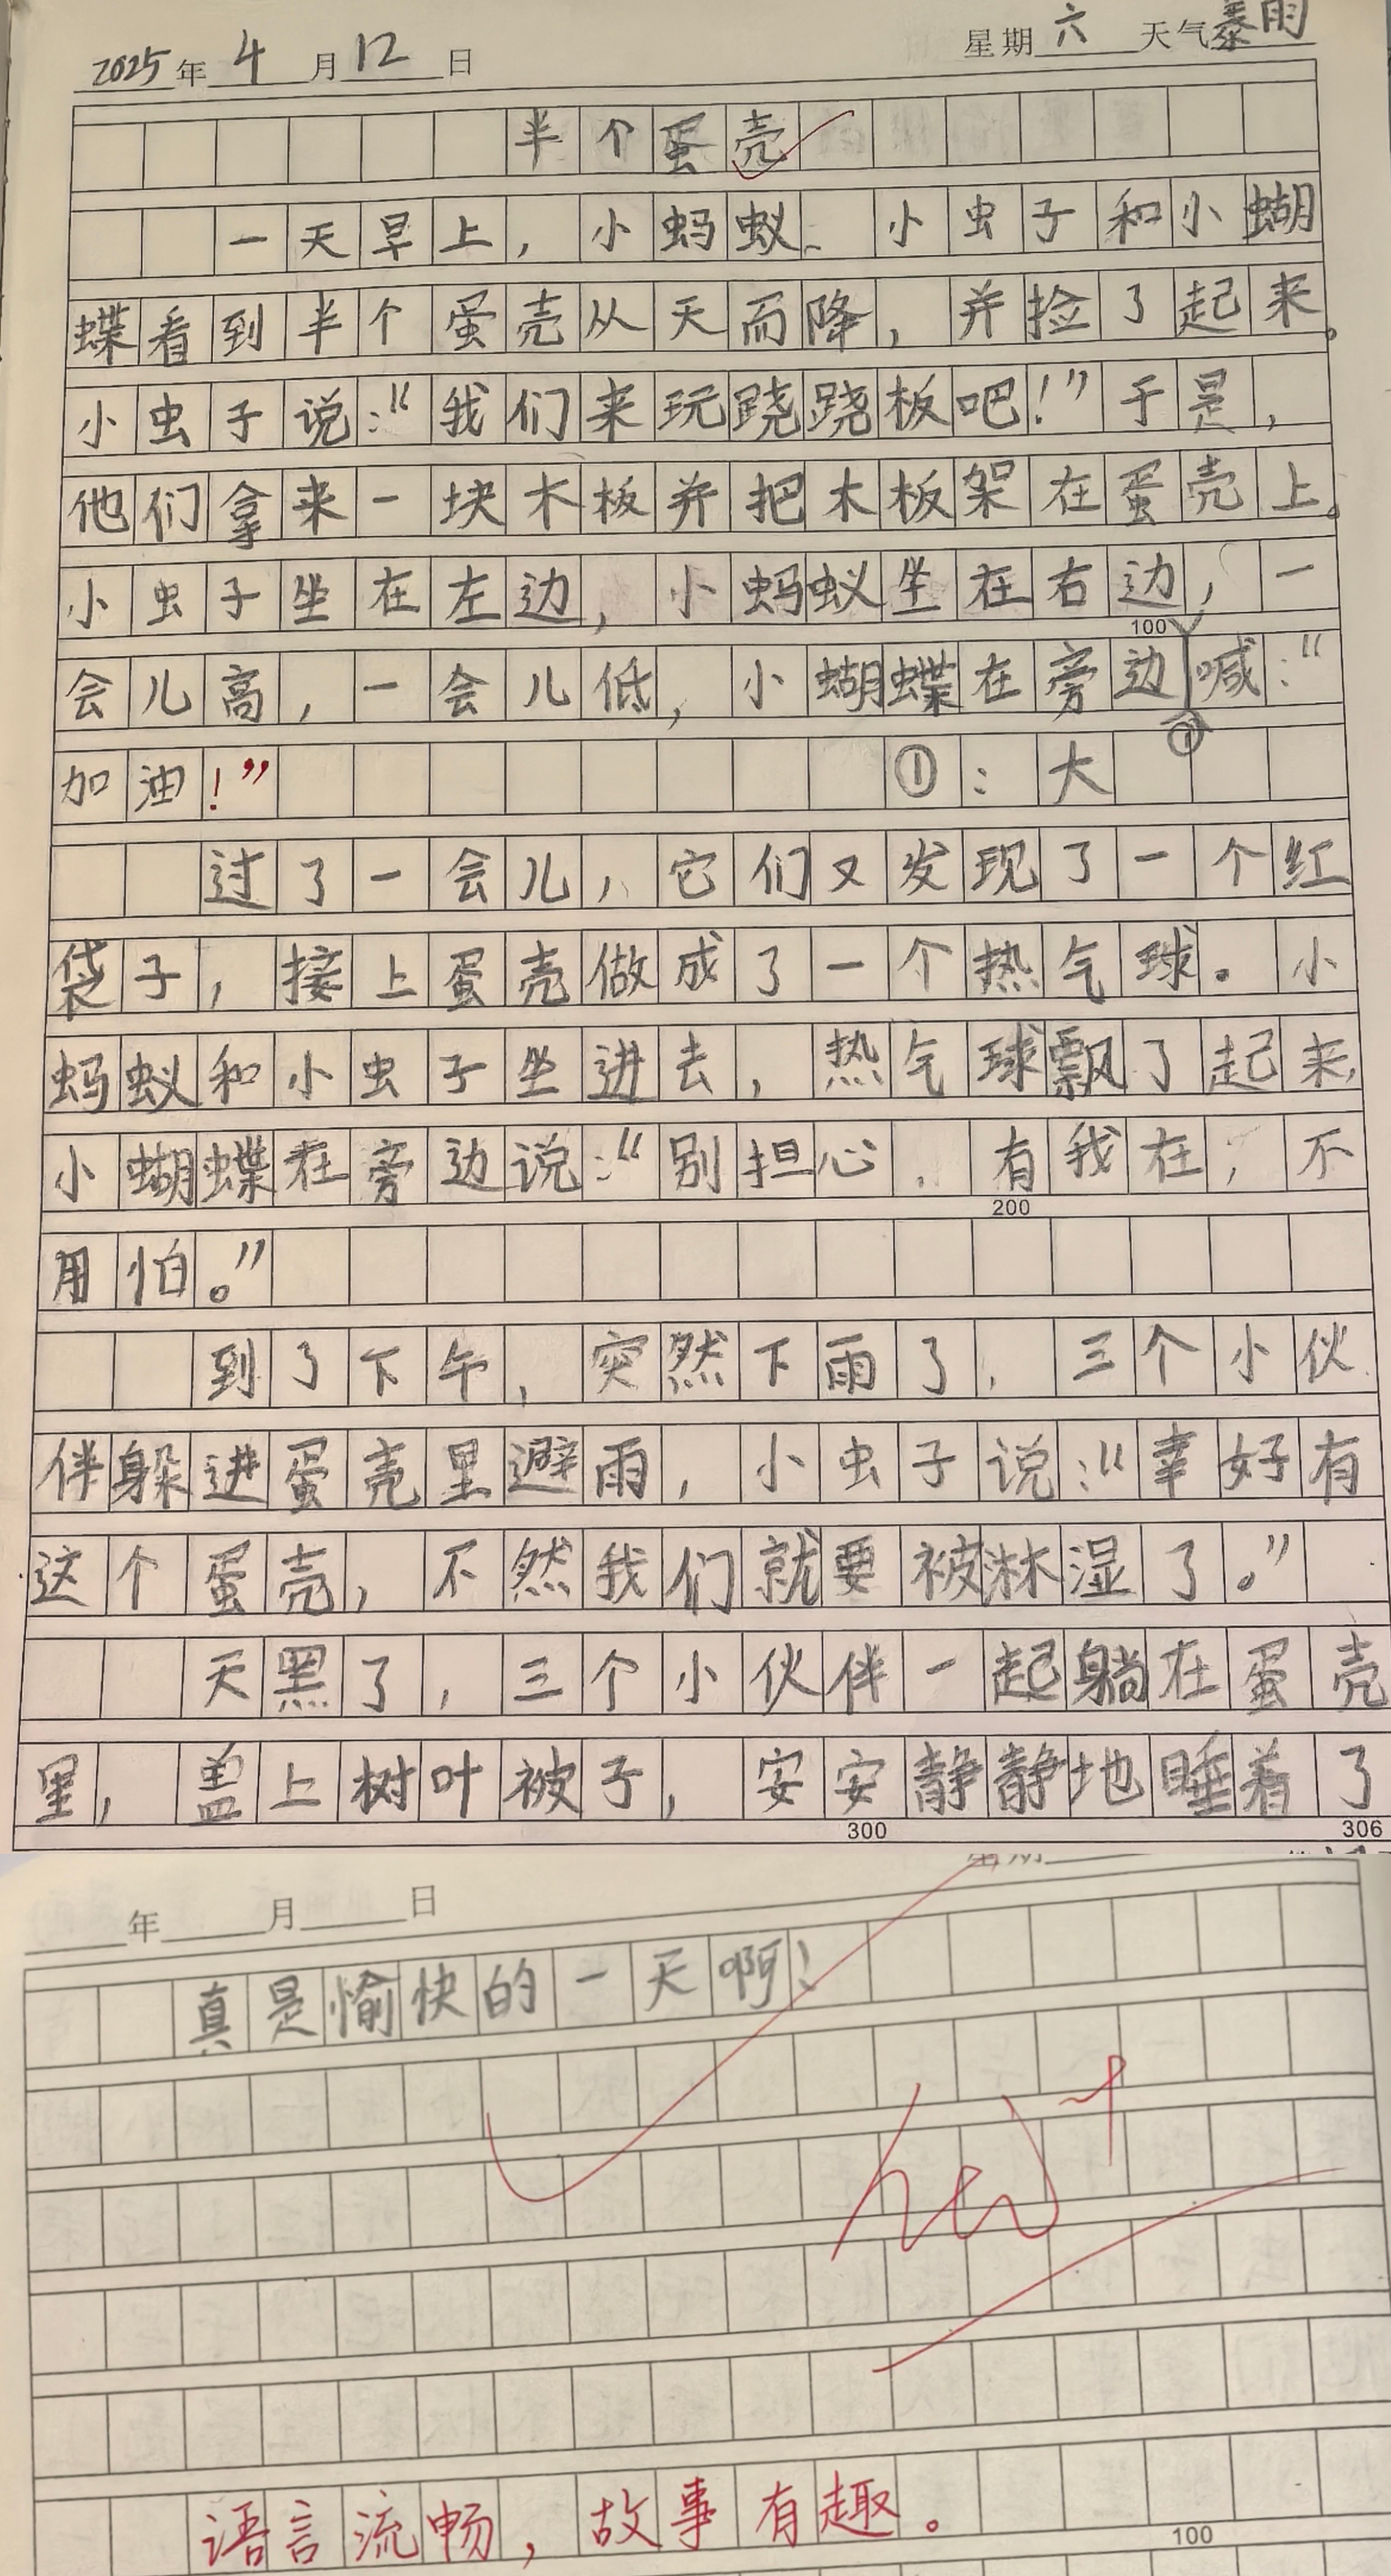 2025年4月12日 星期六 天气暴雨
半个蛋壳
一天早上，小蚂蚁、小虫子和小蝴
蝶看到半个蛋壳从天而降，并捡了起来。
小虫子说：“我们来玩跷跷板吧！”于是，
他们拿来一块木板并把木板架在蛋壳上。
小虫子坐在左边，小蚂蚁坐在右边，一
100
会儿高，一会儿低，小蝴蝶在旁边①喊：“
加油！” ①：大
过了一会儿，它们又发现了一个红
袋子，接上蛋壳做成了一个热气球。小
蚂蚁和小虫子坐进去，热气球飘了起来，
小蝴蝶在旁边说：“别担心，有我在，不
200
用怕。”
到了下午，突然下雨了，三个小伙
伴躲进蛋壳里避雨，小虫子说：“幸好有
这个蛋壳，不然我们就要被淋湿了。”
天黑了，三个小伙伴一起躺在蛋壳
里，盖上树叶被子，安安静静地睡着了
300 306
年 月 日 星期
真是愉快的一天啊！
语言流畅，故事有趣。
100